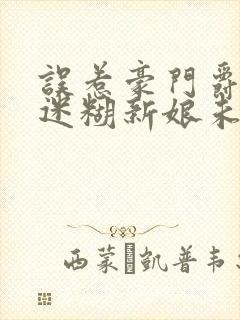 誤惹豪門爵
迷糊新娘未
西蒙·凱普韦